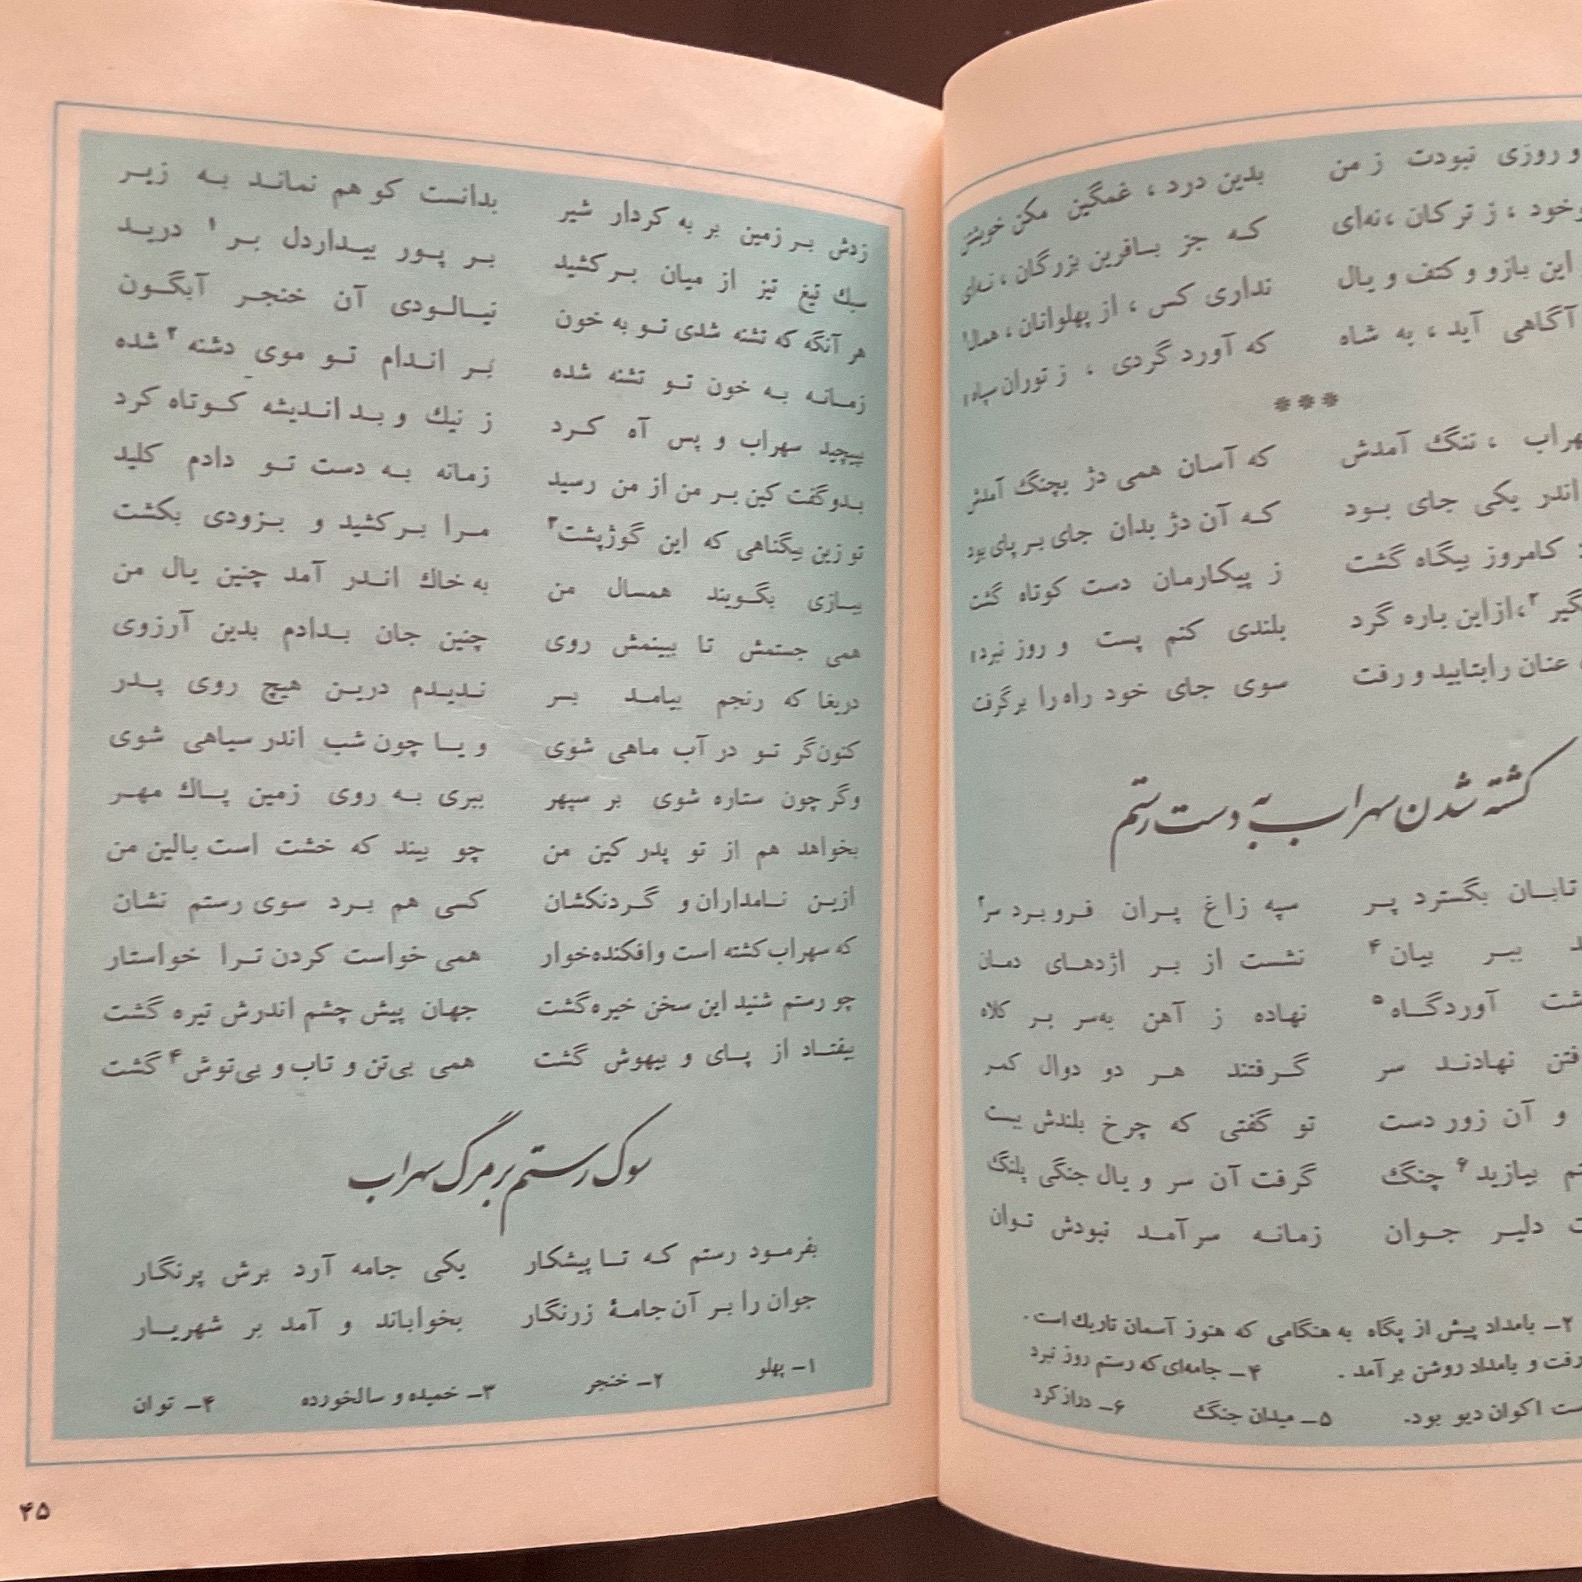 و روزی نبودت ز من بدین درد ، غمگین مکن خویشتن
وخود ، ز ترکان ، نه‌ای که جز بافرین بزرگان ، نه‌ای
این بازو و کتف و یال نداری کس ، از پهلوانان ، همال
آگاهی آید ، به شاه که آورد گردی ، ز توران سپاه
***
، ننگ آمدش که آسان همی دژ بچنگ آمدش
اندر یکی جای بود که آن دژ بدان جای بر پای بود
کامروز بیگاه گشت ز پیکارمان دست کوتاه گشت
۲، ازاین باره گرد بلندی کنم پست و روز نبرد
عنان رابتابید و رفت سوی جای خود راه را برگرفت
کشته شدن سهراب به دست رستم
تابان بگسترد پر سیه زاغ پران فرو برد سر۲
ببر بیان ۴ نشست از بر اژدهای دمان
آوردگاه ۵ نهاده ز آهن به‌سر بر کلاه
نهادند سر گرفتند هر دو دوال کمر
و آن زور دست تو گفتی که چرخ بلندش ببست
بیازید ۶ چنگ گرفت آن سر و یال جنگی پلنگ
دلیر جوان زمانه سرآمد نبودش توان
۲ــ بامداد پیش از پگاه به هنگامی که هنوز آسمان تاریك است .
رفت و بامداد روشن برآمد . ۴ــ جامه‌ای که رستم روز نبرد
اکوان دیو بود. ۵ــ میدان جنگ ۶ــ دراز کرد
زدش بر زمین بر به کردار شیر بدانست کو هم نماند به زیر
سبك تیغ تیز از میان برکشید بر پور بیداردل بر ۱ درید
هر آنگه که تشنه شدی تو به خون نیالودی آن خنجر آبگون
زمانه به خون تو تشنه شده بر اندام تو موی دشنه ۲ شده
بپیچید سهراب و پس آه کرد ز نیك و بد اندیشه کوتاه کرد
بدو گفت کین بر من از من رسید زمانه به دست تو دادم کلید
تو زین بیگناهی که این گوژپشت۳ مرا برکشید و بزودی بکشت
ببازی بگویند همسال من به خاك اندر آمد چنین یال من
همی جستمش تا ببینمش روی چنین جان بدادم بدین آرزوی
دریغا که رنجم بیامد بسر ندیدم درین هیچ روی پدر
کنون‌گر تو در آب ماهی شوی و یا چون شب اندر سیاهی شوی
وگر چون ستاره شوی بر سپهر ببری به روی زمین پاك مهر
بخواهد هم از تو پدر کین من چو بیند که خشت است بالین من
ازین نامداران و گردنکشان کسی هم برد سوی رستم نشان
که سهراب کشته است وافکنده‌خوار همی خواست کردن ترا خواستار
چو رستم شنید این سخن خیره گشت جهان پیش چشم اندرش تیره گشت
بیفتاد از پای و بیهوش گشت همی بی‌تن و تاب و بی‌توش ۴ گشت
سوک رستم بر مرگ سهراب
بفرمود رستم که تا پیشکار یکی جامه آرد برش پرنگار
جوان را بر آن جامهٔ زرنگار بخواباند و آمد بر شهریار
۱ــ پهلو ۲ــ خنجر ۳ــ خمیده و سالخورده ۴ــ توان
۴۵